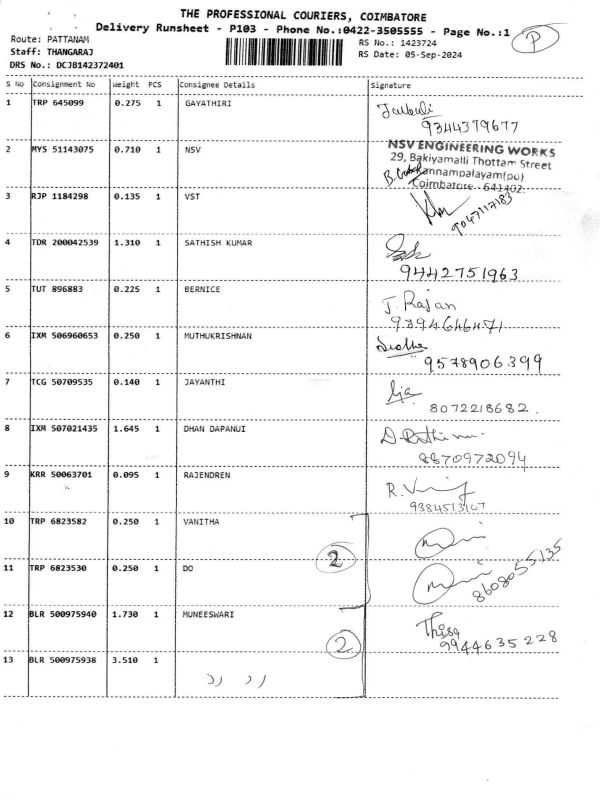 THE PROFESSIONAL COURIERS, COIMBATORE
Delivery Runsheet - P103 - Phone No.:0422-3505555 - Page No.:1
P
Route: PATTANAM
RS No.: 1423724
Staff: THANGARAJ
RS Date: 05-Sep-2024
DRS No.: DCJB142372401
S No Consignment No Weight PCS Consignee Details Signature
1 TRP 645099 0.275 1 GAYATHIRI
9344379677
2 MYS 51143075 0.710 1 NSV
NSV ENGINEERING WORKS
29, Bakiyamalli Thottam Street
Kannampalayam(po)
Coimbatore - 641402
3 RJP 1184298 0.135 1 VST
9047117183
4 TDR 200042539 1.310 1 SATHISH KUMAR
9442751963
5 TUT 896883 0.225 1 BERNICE
J. Rajan
9394646471
6 IXM 506960653 0.250 1 MUTHUKRISHNAN
9578906399
7 TCG 50709535 0.140 1 JAYANTHI
8072218682.
8 IXM 507021435 1.645 1 DHAN DAPANUI
8870972094
9 KRR 50063701 0.095 1 RAJENDREN
9384513107
10 TRP 6823582 0.250 1 VANITHA
2
11 TRP 6823530 0.250 1 DO
8608055135
12 BLR 500975940 1.730 1 MUNEESWARI
2
9944635228
13 BLR 500975938 3.510 1